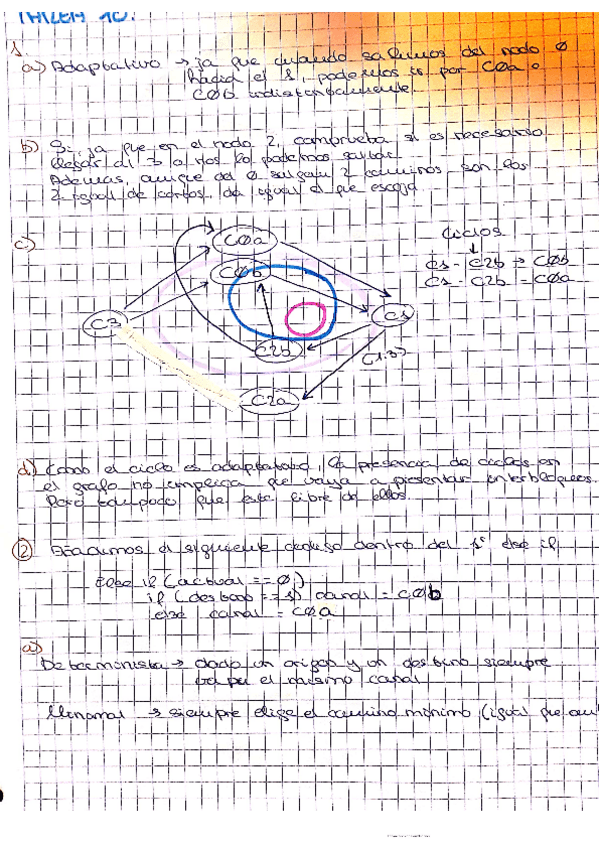 TAREA 10:
1.
a) Adaptativo → ya que cuando salimos del nodo 0
hacia el 1, podemos ir por C0a o
C0b indistintamente.
b) Si, ya que en el nodo 2, comprueba si es necesario
llegar al 3 o nos lo podemos saltar.
Además, aunque del 0 salgan 2 caminos, son los
2 igual de cortos, da igual el que escoja
c)
C0a
C0b
C3
C1
C2b
C2a
(1.3)
Ciclos
↓
C1 - C2b → C0b
C1 - C2b - C0a
d) Como el ciclo es adaptativo, la presencia de ciclos en
el grafo no implica que vaya a presentar interbloqueos.
Pero tampoco que esté libre de ellos.
2 Añadimos el siguiente código dentro del 1º else if
Else if (actual == 0)
if (destino == 1) canal = C0b
else canal = C0a
a)
Determinista → dado un origen y un destino siempre
va por el mismo canal
Minimal → siempre elige el camino mínimo (igual que